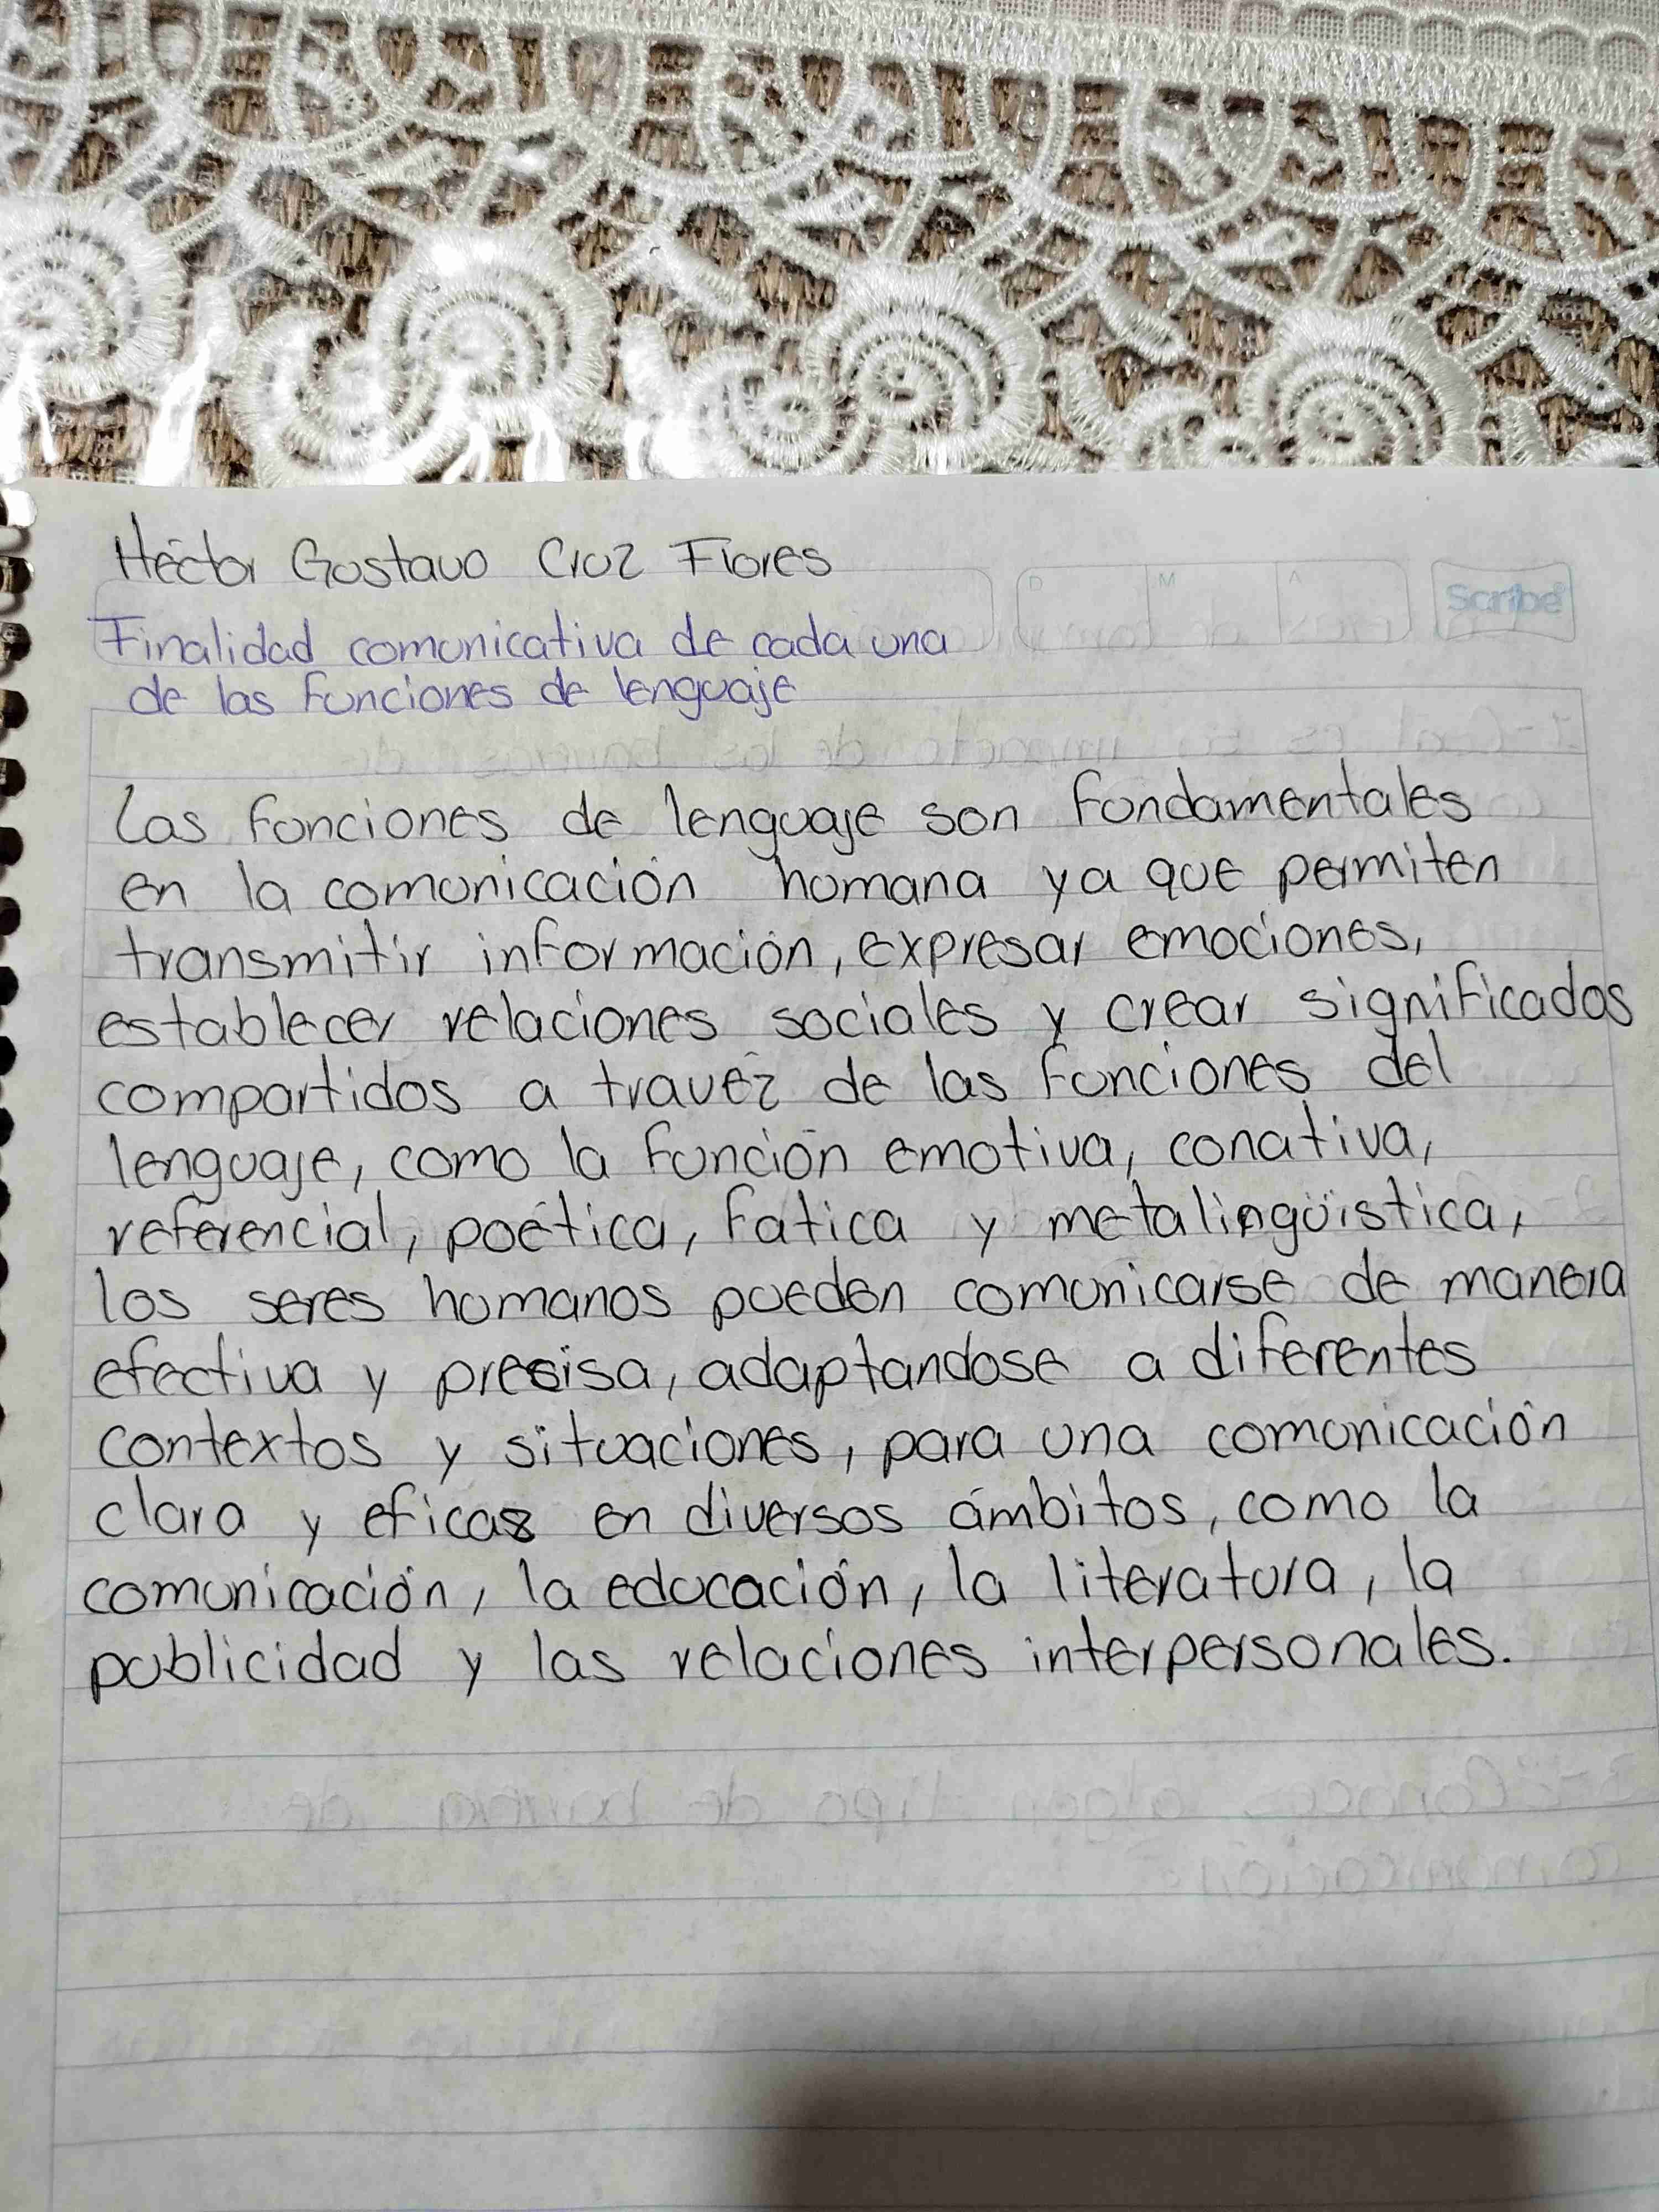 Héctor Gustavo Cruz Flores
D M A
Scribe
Finalidad comunicativa de cada una
de las funciones de lenguaje
Las funciones de lenguaje son fundamentales
en la comunicación humana ya que permiten
transmitir información, expresar emociones,
establecer relaciones sociales y crear significados
compartidos a travéz de las funciones del
lenguaje, como la función emotiva, conativa,
referencial, poética, fatica y metalingüistica,
los seres humanos pueden comunicarse de manera
efectiva y presisa, adaptandose a diferentes
contextos y situaciones, para una comunicación
clara y eficas en diversos ámbitos, como la
comunicación, la educación, la literatura, la
publicidad y las relaciones interpersonales.